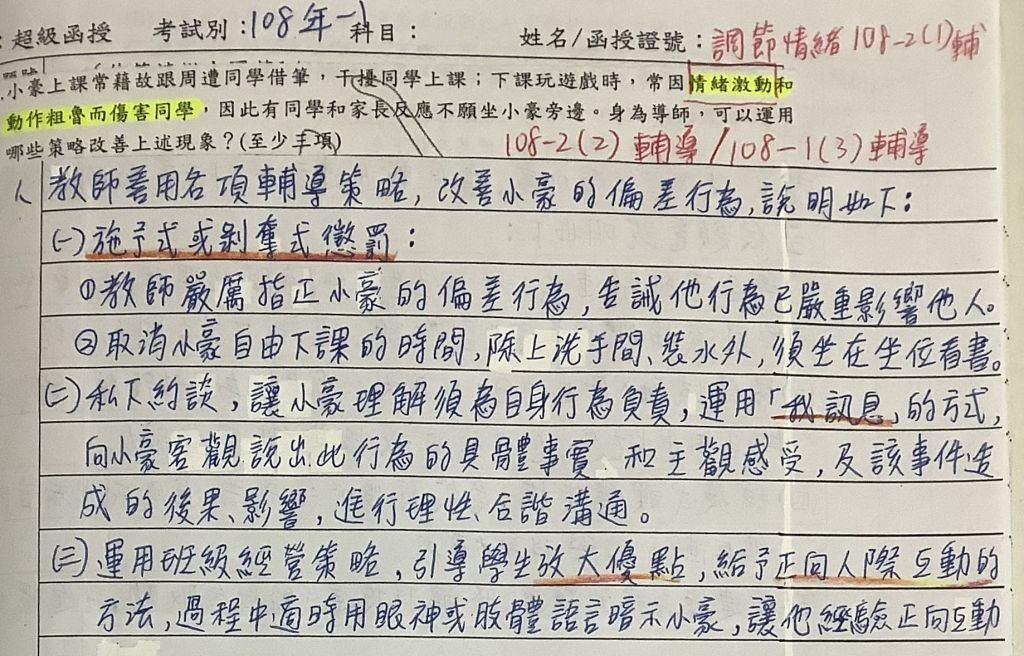 超級函授 考試別：108年-1 科目： 姓名/函授證號：調節情緒 108-2(1)輔
小豪上課常藉故跟周遭同學借筆，干擾同學上課；下課玩遊戲時，常因情緒激動和
動作粗魯而傷害同學，因此有同學和家長反應不願坐小豪旁邊。身為導師，可以運用
哪些策略改善上述現象？(至少三項)
108-2(2) 輔導 / 108-1(3) 輔導
教師善用各項輔導策略，改善小豪的偏差行為，說明如下：
(一)施予式或剝奪式懲罰：
①教師嚴厲指正小豪的偏差行為，告誡他行為已嚴重影響他人。
②取消小豪自由下課的時間，除上洗手間、裝水外，須坐在坐位看書。
(二)私下約談，讓小豪理解須為自身行為負責，運用「我訊息」的方式，
向小豪客觀說出此行為的具體事實 和主觀感受，及該事件造
成的後果、影響，進行理性、合諧溝通。
(三)運用班級經營策略，引導學生放大優點，給予正向人際互動的
方法，過程中適時用眼神或肢體語言暗示小豪，讓他經驗正向互動